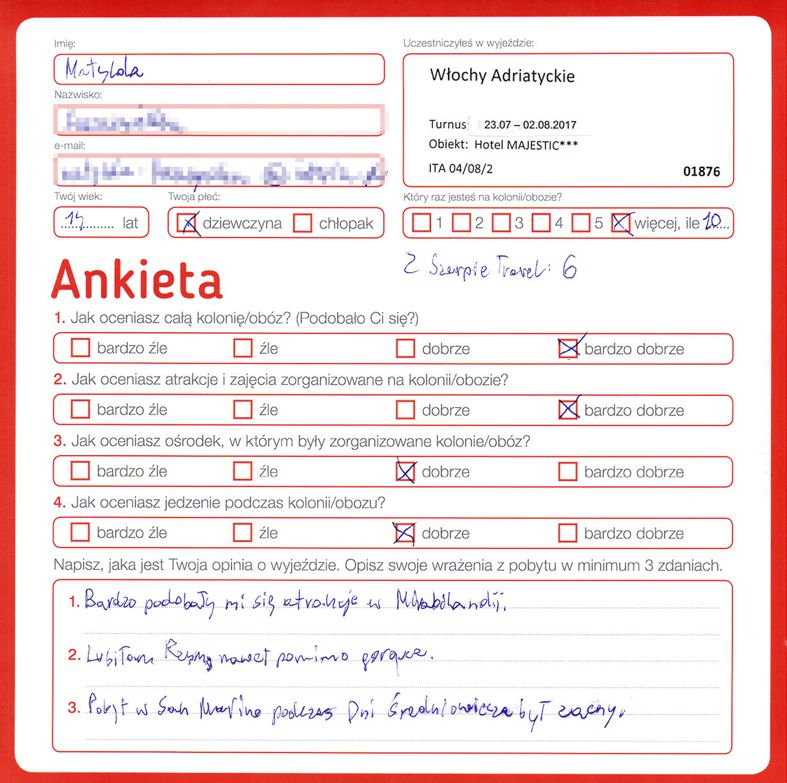 Imię:
Matylda
Nazwisko:
e-mail:
Twój wiek:
lat
Twoja płeć:
dziewczyna chłopak
Uczestniczyłeś w wyjeździe:
Włochy Adriatyckie
Turnus 23.07 – 02.08.2017
Obiekt: Hotel MAJESTIC***
ITA 04/08/2 01876
Który raz jesteś na kolonii/obozie?
1 2 3 4 5 więcej, ile 10
Z Szarpie Travel: 6
Ankieta
1. Jak oceniasz całą kolonię/obóz? (Podobało Ci się?)
bardzo źle źle dobrze bardzo dobrze
2. Jak oceniasz atrakcje i zajęcia zorganizowane na kolonii/obozie?
bardzo źle źle dobrze bardzo dobrze
3. Jak oceniasz ośrodek, w którym były zorganizowane kolonie/obóz?
bardzo źle źle dobrze bardzo dobrze
4. Jak oceniasz jedzenie podczas kolonii/obozu?
bardzo źle źle dobrze bardzo dobrze
Napisz, jaka jest Twoja opinia o wyjeździe. Opisz swoje wrażenia z pobytu w minimum 3 zdaniach.
1. Bardzo podobały mi się atrakcje w Mirabilandii.
2. Lubiłam nawet pomimo gorąca.
3. Pobyt w San Marino podczas Dni Średniowiecza był zacny.